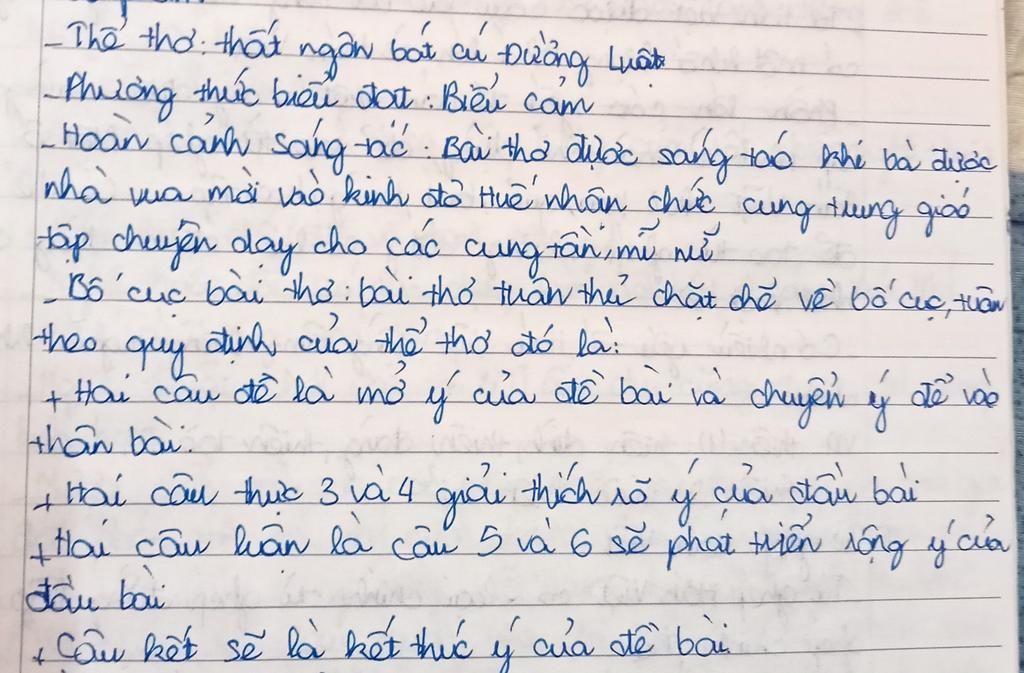 - Thể thơ: thất ngôn bát cú Đường Luật
- Phương thức biểu đạt: Biểu cảm
- Hoàn cảnh sáng tác: Bài thơ được sáng tác khi bà được
nhà vua mời vào kinh đô Huế nhận chức cung trung giáo
tập chuyên dạy cho các cung tần, mĩ nữ
- Bố cục bài thơ: bài thơ tuân thủ chặt chẽ về bố cục, tuân
theo quy định của thể thơ đó là:
+ Hai câu đề là mở ý của đề bài và chuyển ý để vào
thân bài.
+ Hai câu thực 3 và 4 giải thích rõ ý của đầu bài
+ Hai câu luận là câu 5 và 6 sẽ phát triển rộng ý của
đầu bài
+ Câu kết sẽ là kết thúc ý của đề bài.